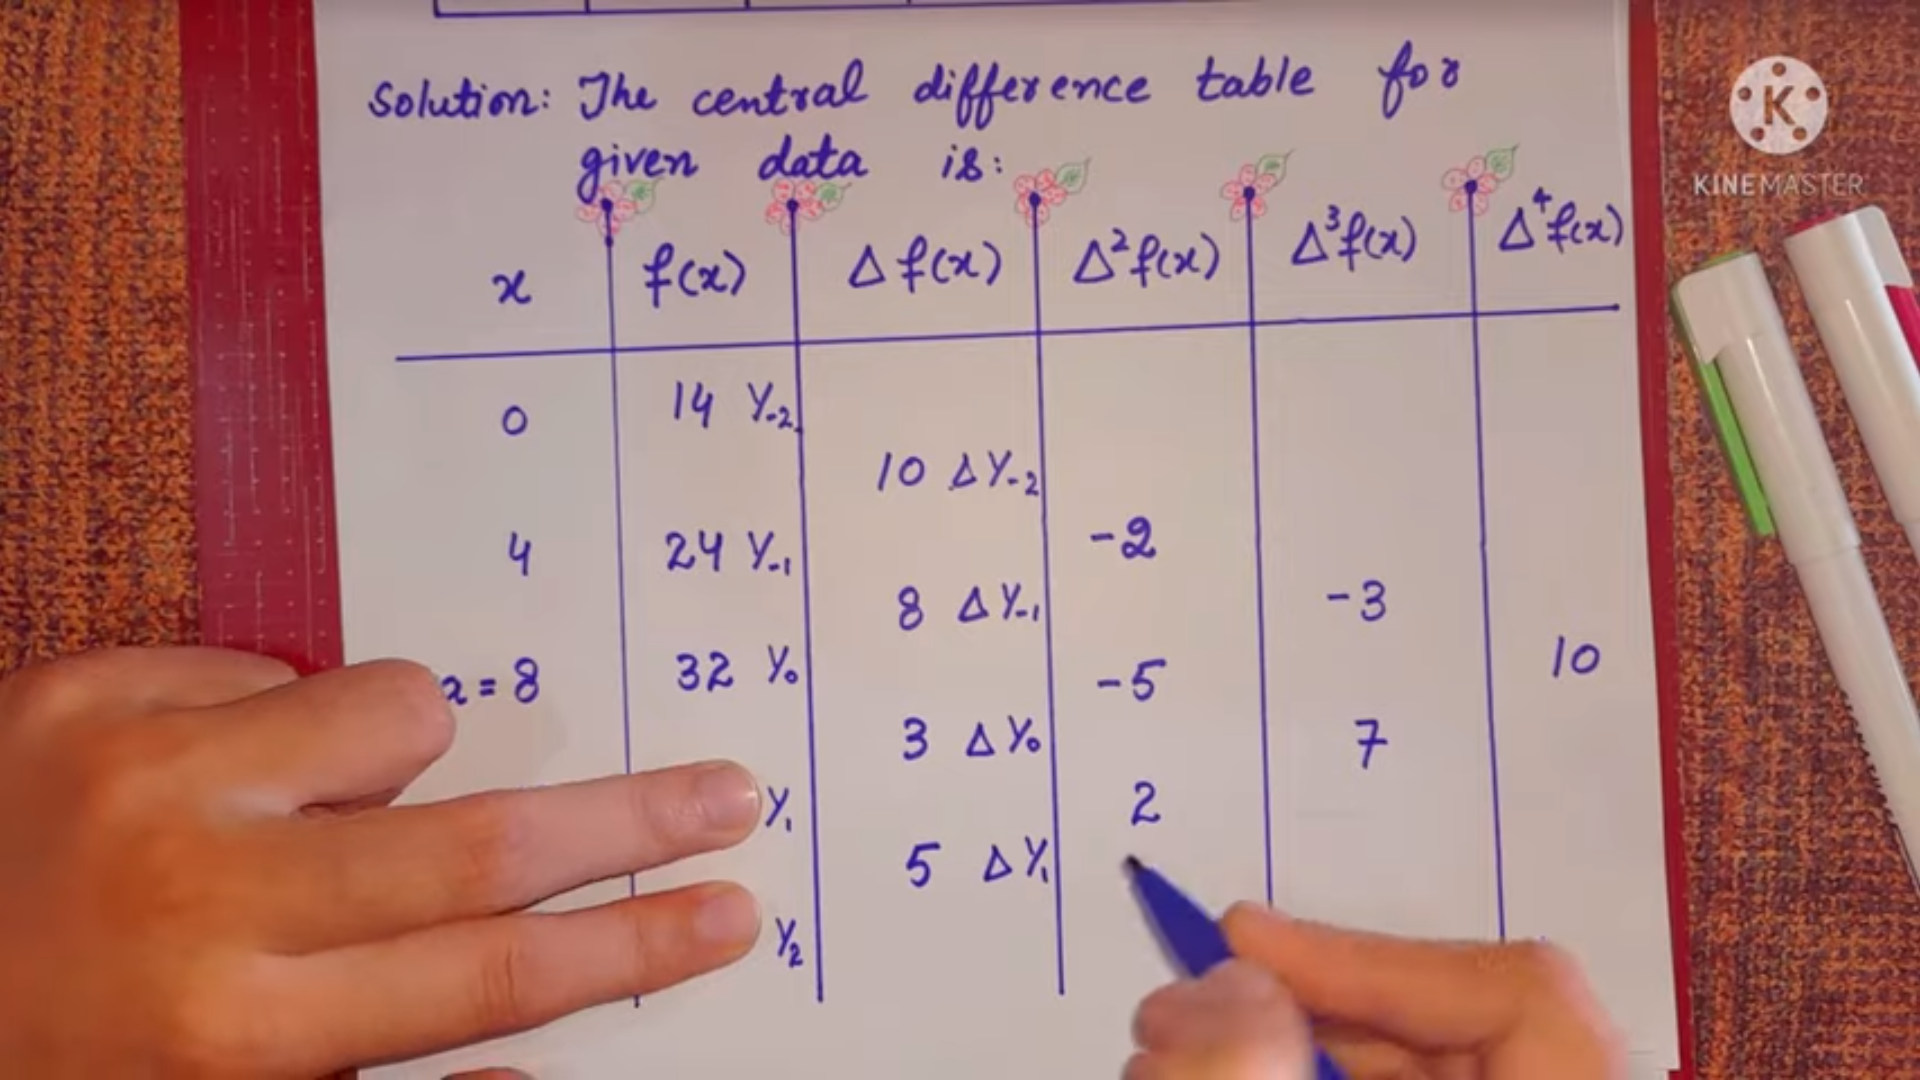 Solution: The central difference table for
given data is:
x f(x) Δf(x) Δ²f(x) Δ³f(x) Δ⁴f(x)
0 14 Y₋₂
10 ΔY₋₂
4 24 Y₋₁ -2
8 ΔY₋₁ -3
a = 8 32 Y₀ -5 10
3 ΔY₀ 7
Y₁ 2
5 ΔY₁
Y₂
K
KINEMASTER